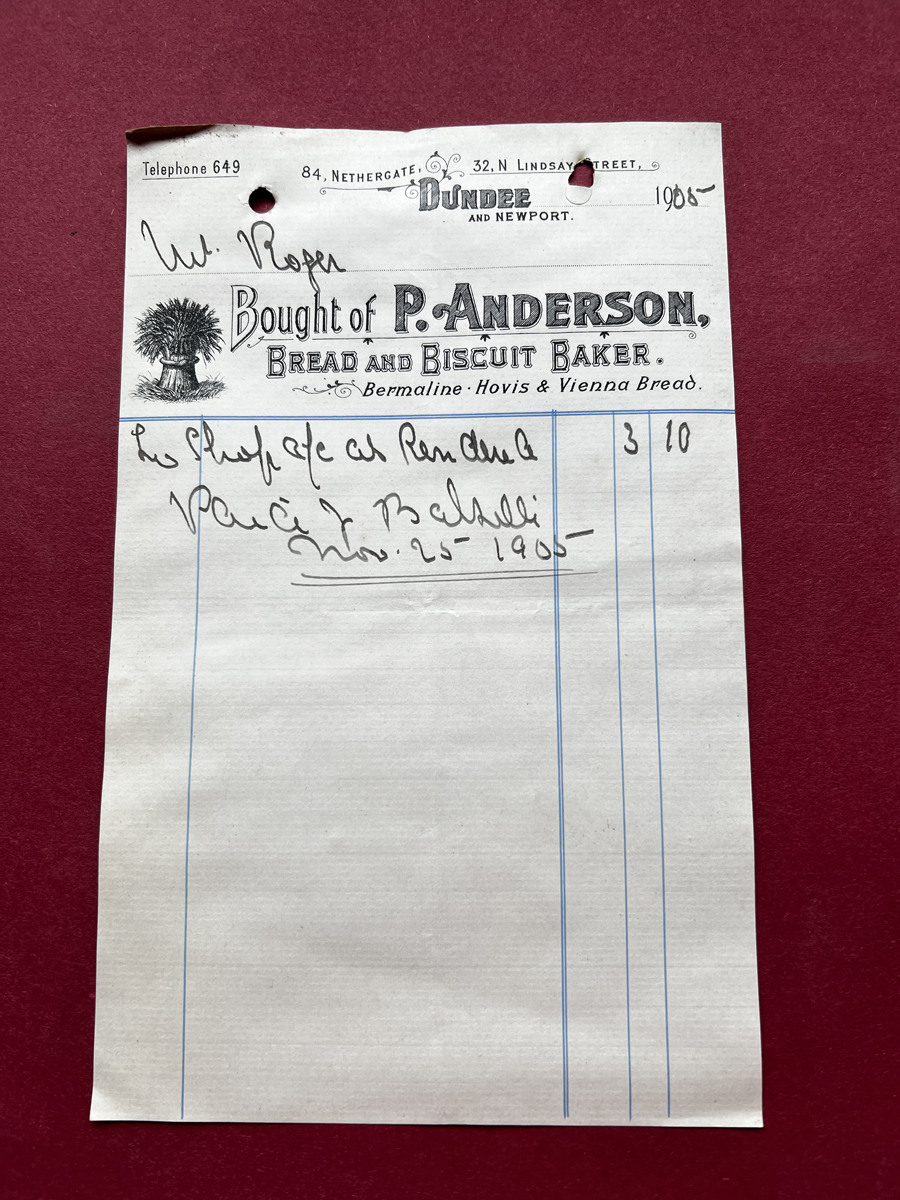 Telephone 649
84, NETHERGATE, 32, N LINDSAY STREET,
DUNDEE
AND NEWPORT.
1905
Mr. Roger
Bought of P. ANDERSON,
BREAD AND BISCUIT BAKER.
Bermaline · Hovis & Vienna Bread.
To Shop a/c as Rendered 3 10
Nov. 25 1905